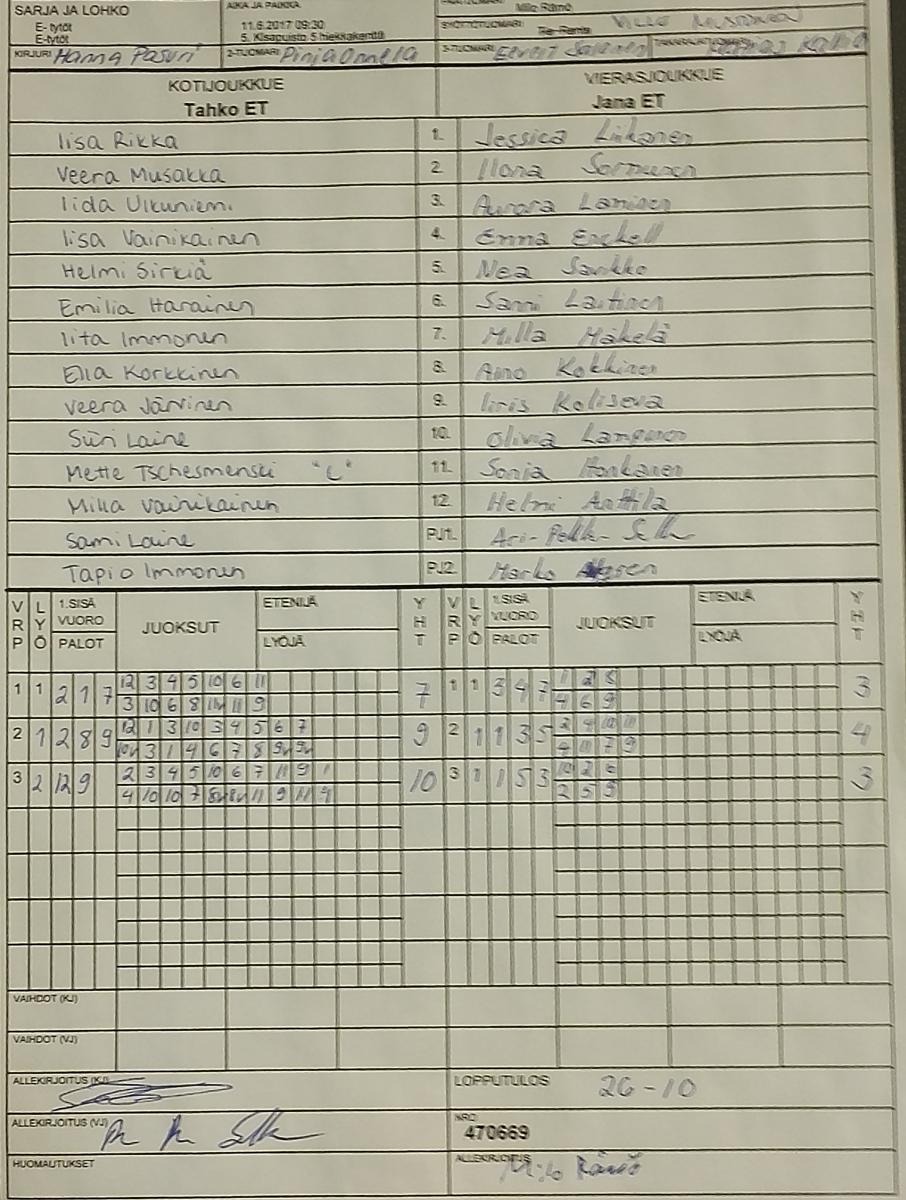 SARJA JA LOHKO AIKA JA PAIKKA Milo Rämö
E- tytöt 11.6.2017 09:30 SYÖTTÖTUOMARI
E-tytöt 5. Kisapuisto 5 hiekkakenttä
KIRJURI Hanna Pasuri 2-TUOMARI Pinja Onnela 3-TUOMARI Eeveri
KOTIJOUKKUE VIERASJOUKKUE
Tahko ET Jana ET
Iisa Rikka 1. Jessica Liikanen
Veera Musakka 2. Ilona Sormunen
Iida Ulkuniemi 3. Aurora Laminen
Iisa Vainikainen 4. Emma Enckell
Helmi Sirkiä 5. Nea Saukko
Emilia Harainen 6. Sanni Lautinen
Iita Immonen 7. Milla Mäkelä
Ella Korkkinen 8. Aino Kokkinen
Veera Järvinen 9. Iiris Koliseva
Siiri Laine 10. Olivia Lampinen
Mette Tschesmenski "C" 11. Sonja Honkanen
Milla Vainikainen 12. Helmi Anttila
Sami Laine PJ1. Ari-Pekk-
Tapio Immonen PJ2. Marko
VRP LYÖ 1.SISÄ VUORO PALOT JUOKSUT ETENIJÄ LYÖJÄ YHT VRP LYÖ 1.SISÄ VUORO PALOT JUOKSUT ETENIJÄ LYÖJÄ YHT
1 1 2 1 7 12 3 4 5 10 6 11 7 1 1 3 4 7 1 2 8 3
3 10 6 8 11 9 4 6 9
2 1 2 8 9 12 1 3 10 3 4 5 6 7 9 2 1 1 3 5 2 9 10 11 4
3 1 4 6 7 8 4 11 7 9
3 2 12 9 2 3 4 5 10 6 7 11 9 1 10 3 1 1 5 3 10 2 6 3
4 10 10 7 11 9 11 2 5 9
VAIHDOT (KJ)
VAIHDOT (VJ)
ALLEKIRJOITUS (KJ) LOPPUTULOS 26-10
ALLEKIRJOITUS (VJ) NRO
470669
HUOMAUTUKSET ALLEKIRJOITUS Milo Rämö